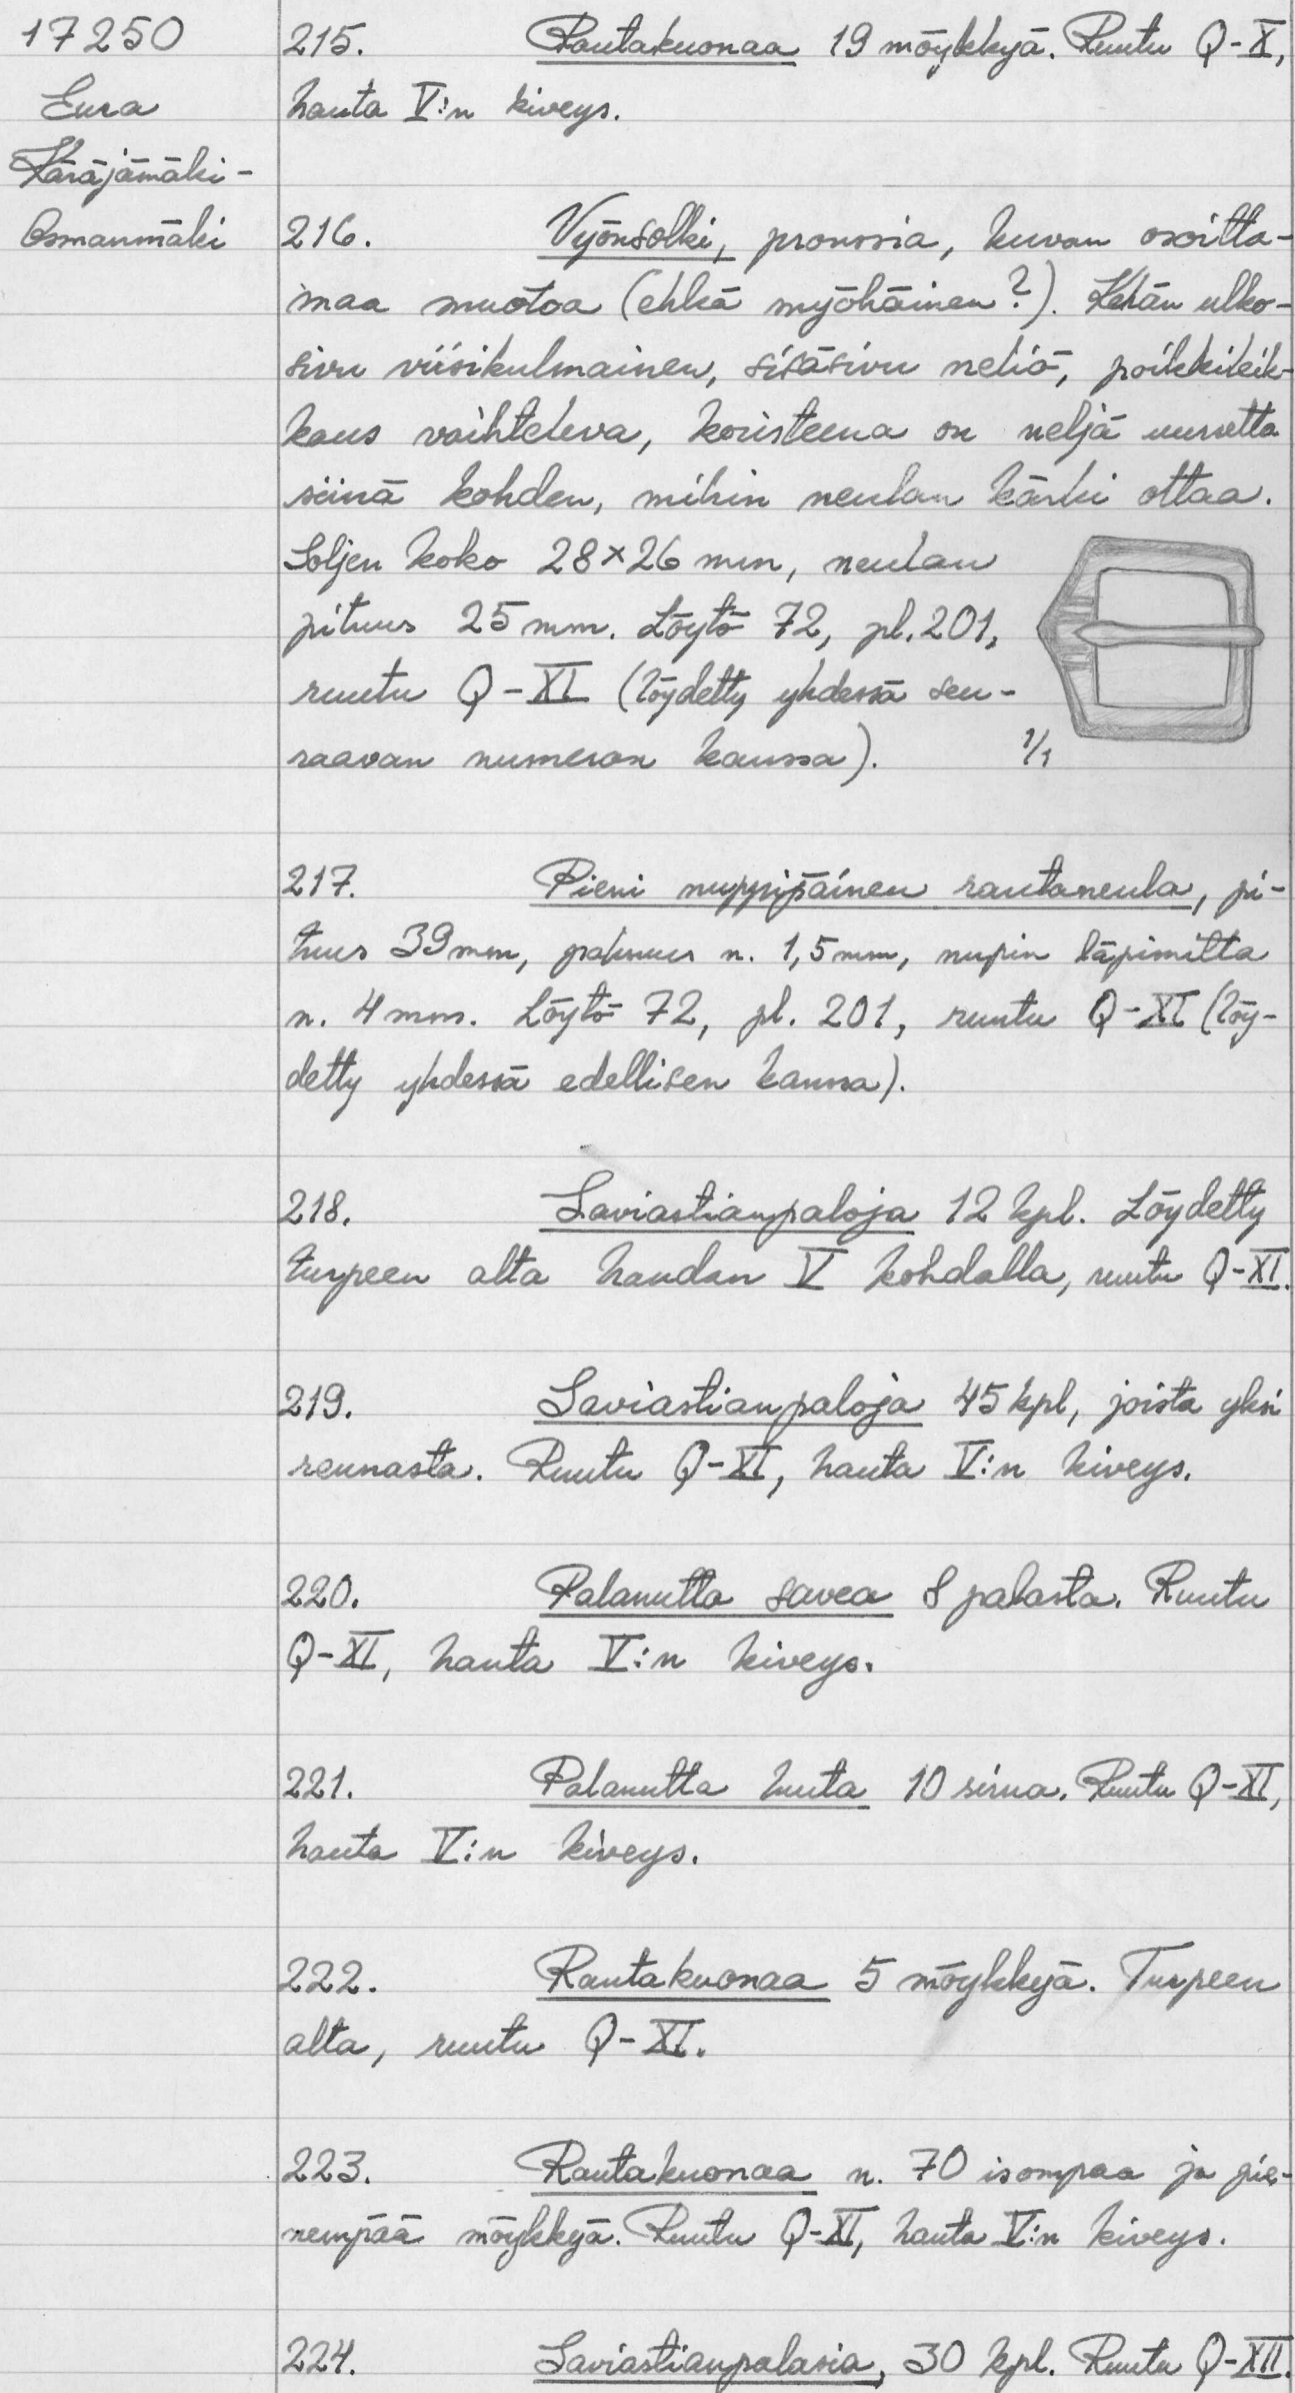 17250
Eura
Käräjämäki-
Osmanmäki
215. Rautakuonaa 19 möykkyä. Ruutu Q-X,
hauta V:n kiveys.
216. Vyönsolki, pronssia, kuvan osoitta-
maa muotoa (ehkä myöhäinen?). Kehän ulko-
sivu viisikulmainen, sisäsivu neliö, poikkileik-
kaus vaihteleva, koristeena on neljä uurretta
siinä kohden, mihin neulan kärki ottaa.
Soljen koko 28×26 mm, neulan
pituus 25 mm. Löytö 72, pl. 201,
ruutu Q-XI (löydetty yhdessä seu-
raavan numeron kanssa).
1/1
217. Pieni nuppipäinen rautaneula, pi-
tuus 39 mm, paksuus n. 1,5 mm, nupin läpimitta
n. 4 mm. Löytö 72, pl. 201, ruutu Q-XI (löy-
detty yhdessä edellisen kanssa).
218. Saviastianpaloja 12 kpl. Löydetty
turpeen alta haudan V kohdalla, ruutu Q-XI.
219. Saviastianpaloja 45 kpl, joista yksi
reunasta. Ruutu Q-XI, hauta V:n kiveys.
220. Palanutta savea 8 palasta. Ruutu
Q-XI, hauta V:n kiveys.
221. Palanutta luuta 10 sirua. Ruutu Q-XI,
hauta V:n kiveys.
222. Rautakuonaa 5 möykkyä. Turpeen
alta, ruutu Q-XI.
223. Rautakuonaa n. 70 isompaa ja pie-
nempää möykkyä. Ruutu Q-XI, hauta V:n kiveys.
224. Saviastianpalasia, 30 kpl. Ruutu Q-XII.